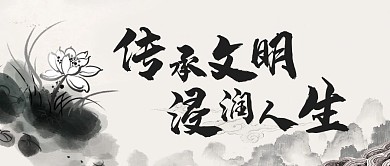 传承文明
浸润人生